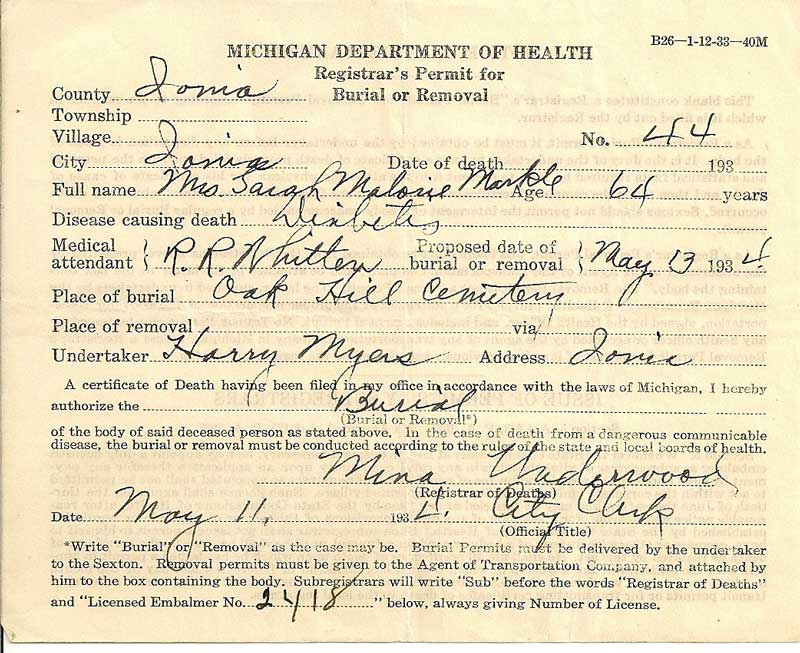 B26—1-12-33—40M
MICHIGAN DEPARTMENT OF HEALTH
Registrar's Permit for
Burial or Removal
County Ionia
Township
Village
No. 44
City Ionia Date of death 193
Full name Mrs. Sarah Malone Markle Age 64 years
Disease causing death Diabetis
Medical attendant } R. R. Whitten Proposed date of burial or removal } May 13 1934
Place of burial Oak Hill Cemetery
Place of removal via
Undertaker Harry Myers Address Ionia
A certificate of Death having been filed in my office in accordance with the laws of Michigan, I hereby
authorize the Burial
(Burial or Removal*)
of the body of said deceased person as stated above. In the case of death from a dangerous communicable
disease, the burial or removal must be conducted according to the rules of the state and local boards of health.
Mina Underwood
(Registrar of Deaths)
Date May 11, 1934. City Clerk
(Official Title)
*Write "Burial" or "Removal" as the case may be. Burial Permits must be delivered by the undertaker
to the Sexton. Removal permits must be given to the Agent of Transportation Company, and attached by
him to the box containing the body. Subregistrars will write "Sub" before the words "Registrar of Deaths"
and "Licensed Embalmer No. 2418" below, always giving Number of License.